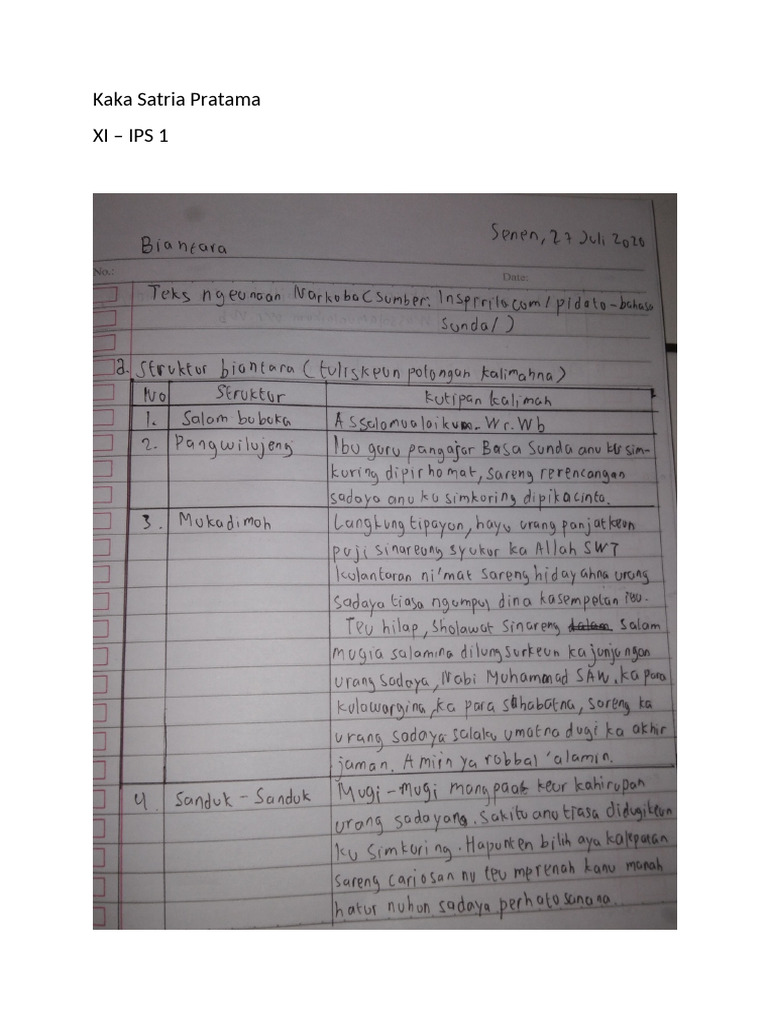 Kaka Satria Pratama
XI – IPS 1
Senen, 27 Juli 2020
Biantara
No.:
Date:
Teks ngeunaan Narkoba (sumber: Inspirilo.com/pidato-bahasa
sunda/)
a. Struktur biantara (tuliskeun potongan kalimahna)
No Struktur Kutipan kalimah
1. Salam bubuka Assalamualaikum. Wr. Wb
2. Pangwilujeng Ibu guru pangajar Basa Sunda anu ku sim-
kuring dipirhomat, sareng rerencangan
sadaya anu ku simkuring dipikacinta.
3. Mukadimah Langkung tipayun, hayu urang panjatkeun
puji sinareung syukur ka Allah SWT
kulantaran ni'mat sareng hidayahna urang
sadaya tiasa ngumpul dina kasempetan ieu.
Teu hilap, sholawat sinareng dalam salam
mugia salamina dilungsurkeun kajunjungan
urang sadaya, Nabi Muhammad SAW, ka para
kulawargina, ka para sahabatna, sareng ka
urang sadaya salaku umatna dugi ka akhir
jaman. Amiin ya robbal 'alamin.
4. Sanduk - Sanduk Mugi-Mugi mangpaat keur kahirupan
urang sadayana. Sakitu anu tiasa didugikeun
ku simkuring. Hapunten bilih aya kalepatan
sareng cariosan nu teu merenah kanu manah
hatur nuhun sadaya perhatosanana.